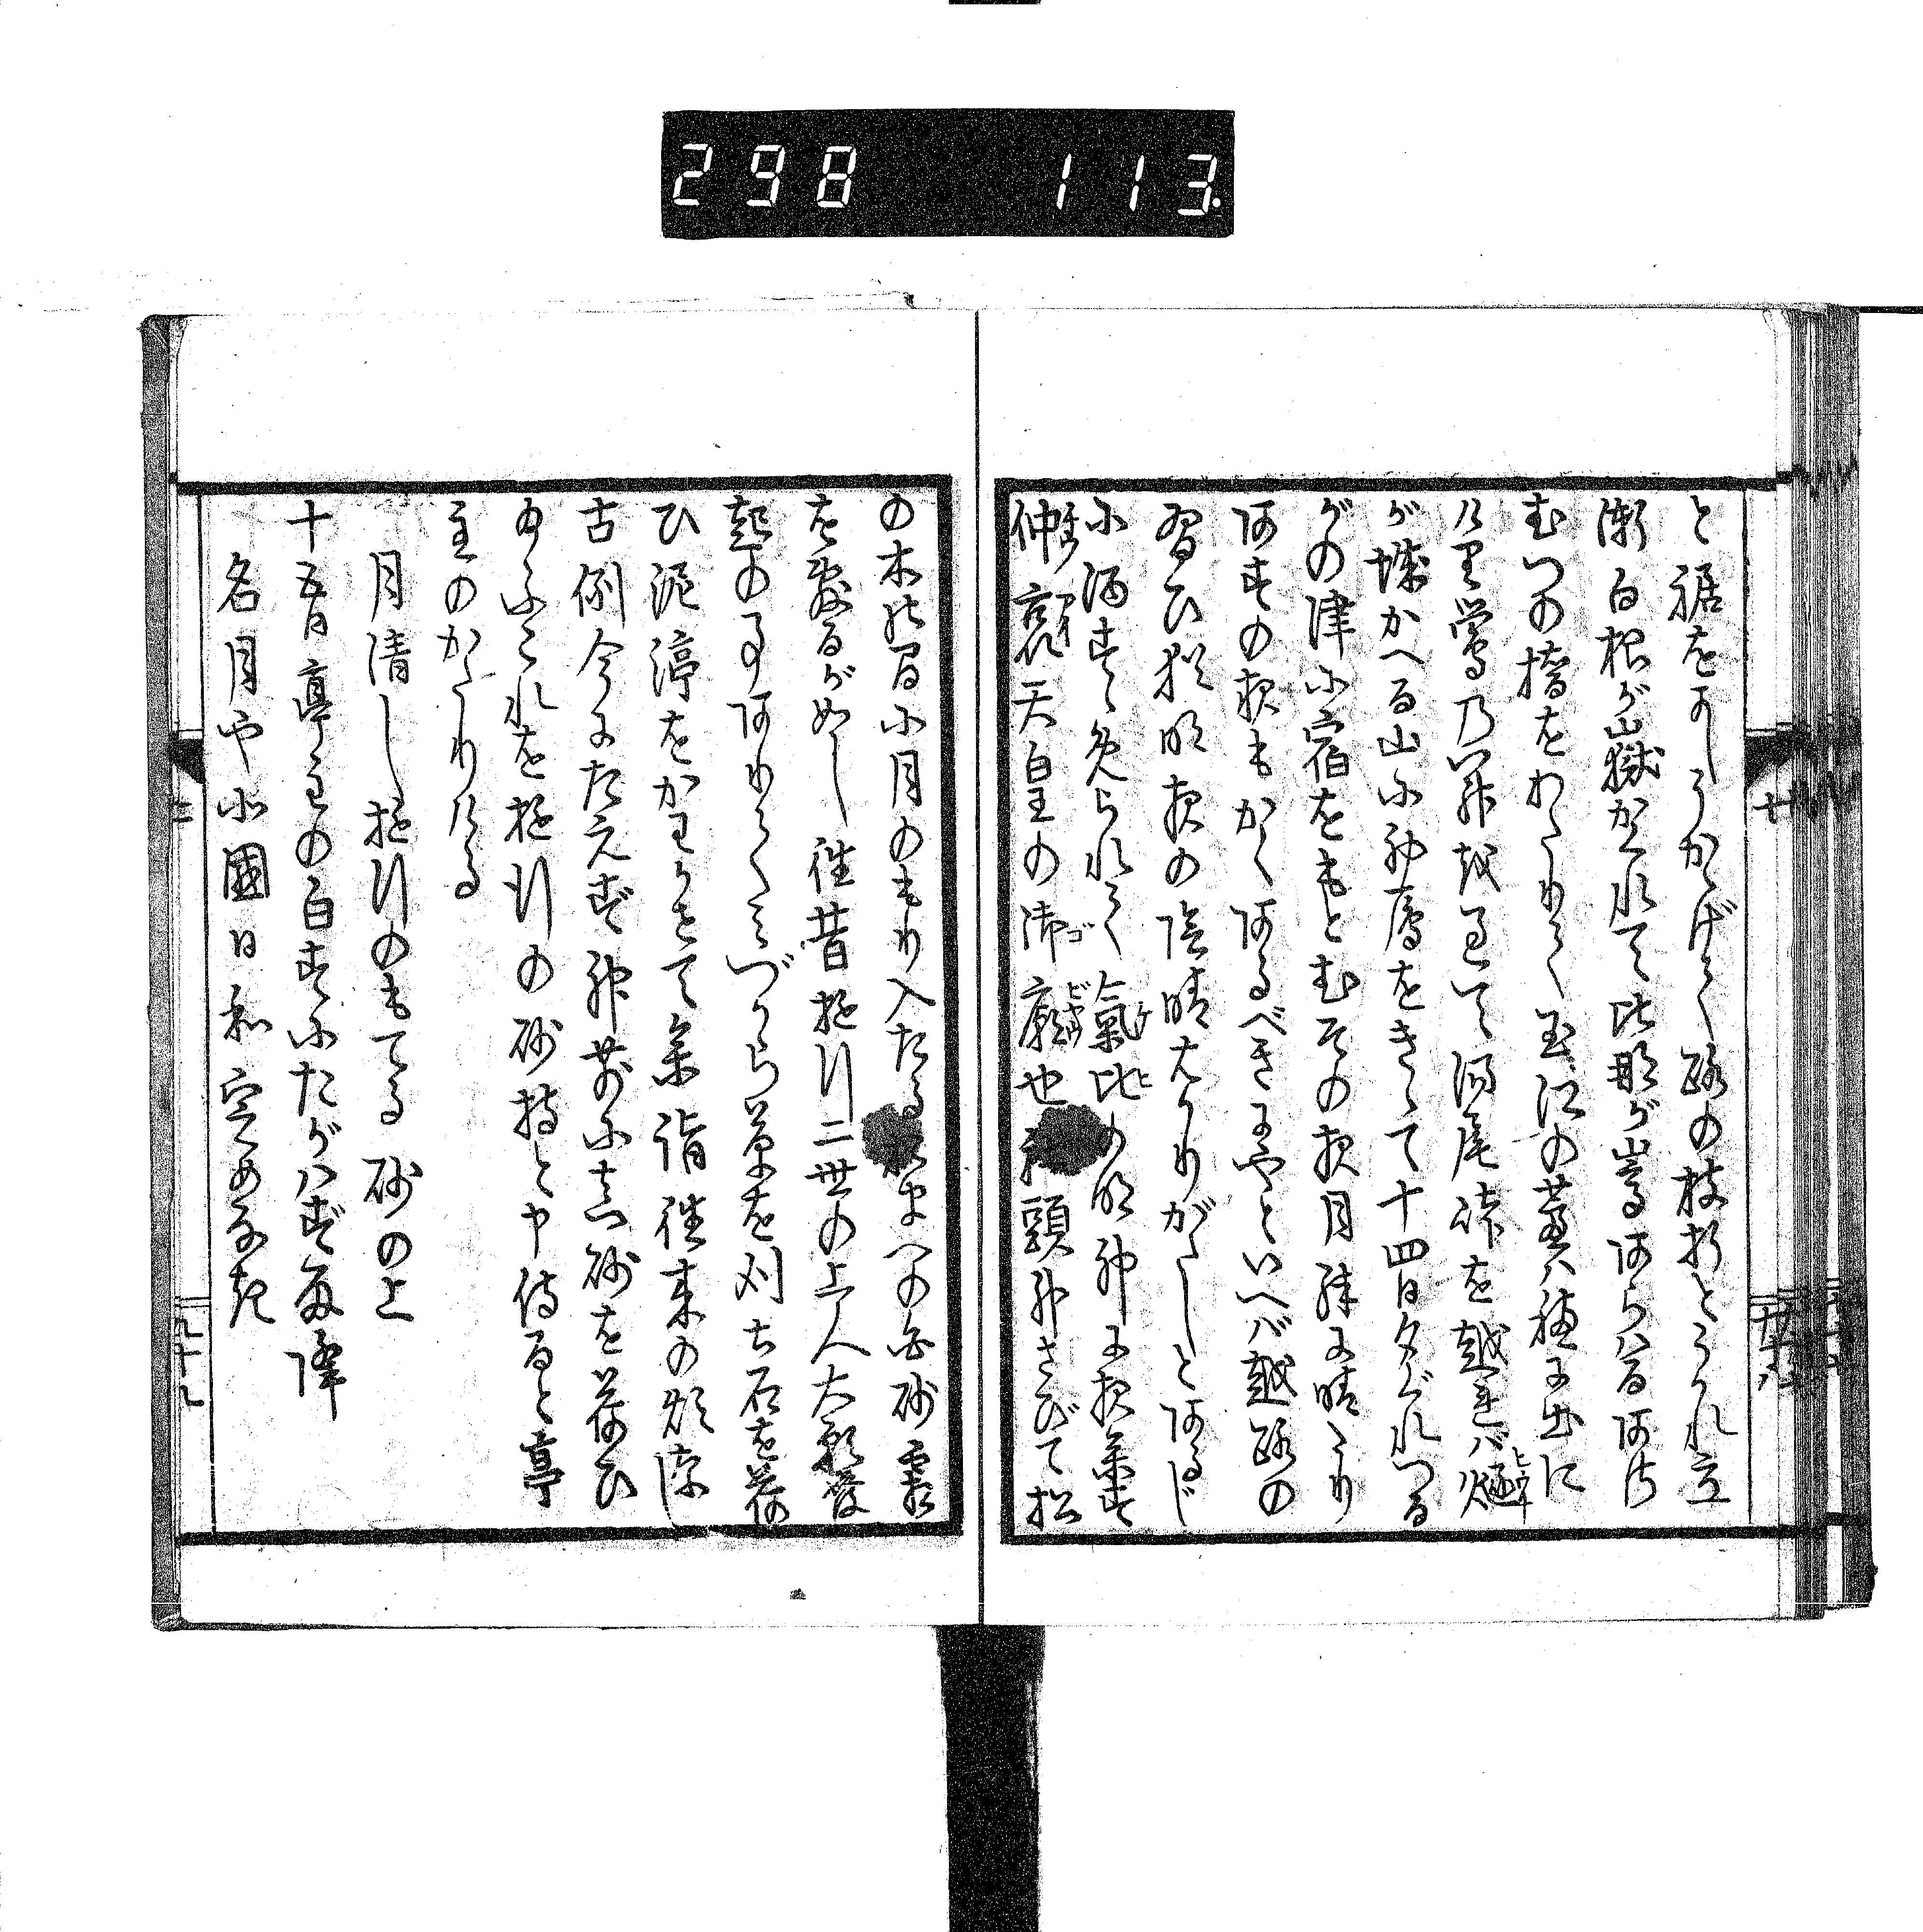 298 113.
と裾をおかしうからげて路の枝折とうかれ立
漸白根が嶽かくれて比那が嵩あらはるあさ
むつの橋をわたりて玉江の蘆は穂に出に
けり鶯乃関を過て湯尾峠を越れば燧
が城かへる山に初雁をきゝて十四日夕ぐれつる
がの津に宿をもとむその夜月殊に晴たり
あすの夜もかくあるべきにやといへば越路の
習ひ猶明夜の陰晴はかりがたしとあるじ
に酒すゝめられて氣比の明神に夜参す
仲哀天皇の御廟也社頭神さびて松
の木の間に月のもり入たるおまへの白砂霜
を敷るが如し往昔遊行二世の上人大願發
起の事ありてみづから草を刈土石を荷
ひ泥渟をかわかせて参詣往来の煩なし
古例今にたえず神前に真砂を荷ひ
給ふこれを遊行の砂持と申侍ると亭
主のかたりける
月清し遊行のもてる砂の上
十五日亭主の白すにたがはず雨降
名月や北國日和定めなき